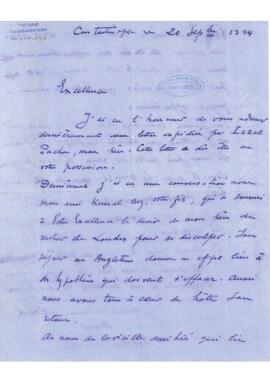 Constantinople le 20 Sepbre
Excellence
J'ai eu l'honneur de vous adresser
dernièrement une lettre expédiée par Izzet
Pacha, mon père. Cette lettre a dû être en
votre possession.
j'ai eu une conversation avec
mon ami Kemal Bey, votre fils, qui a soumis
à Votre Excellence le désir de mon père de
de Londres pour se disculper. Son
séjour en Angleterre donne en effet lieu à
des hypothèses qui doivent s'effacer. Aussi
nous avons tous à cœur de hâter son
retour.
Au nom de la vieille amitié qui lie